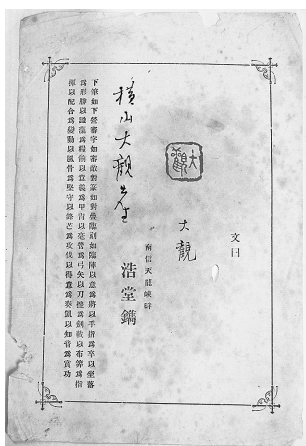 文曰
大觀
大觀
南信天龍峽畔
浩堂鐫
横山大觀先生
下筆如下營審字如審敵對篆如對壘臨刻如臨陣以意爲將以手指爲卒以坐落
爲形勝以識藻爲糧餉以意義爲甲冑以毫管爲弓矢以刀挫爲劍戟以布算爲指
揮以配合爲變動以風骨爲堅守以鋒芒爲攻伐以得意爲奏凱以知音爲賞功